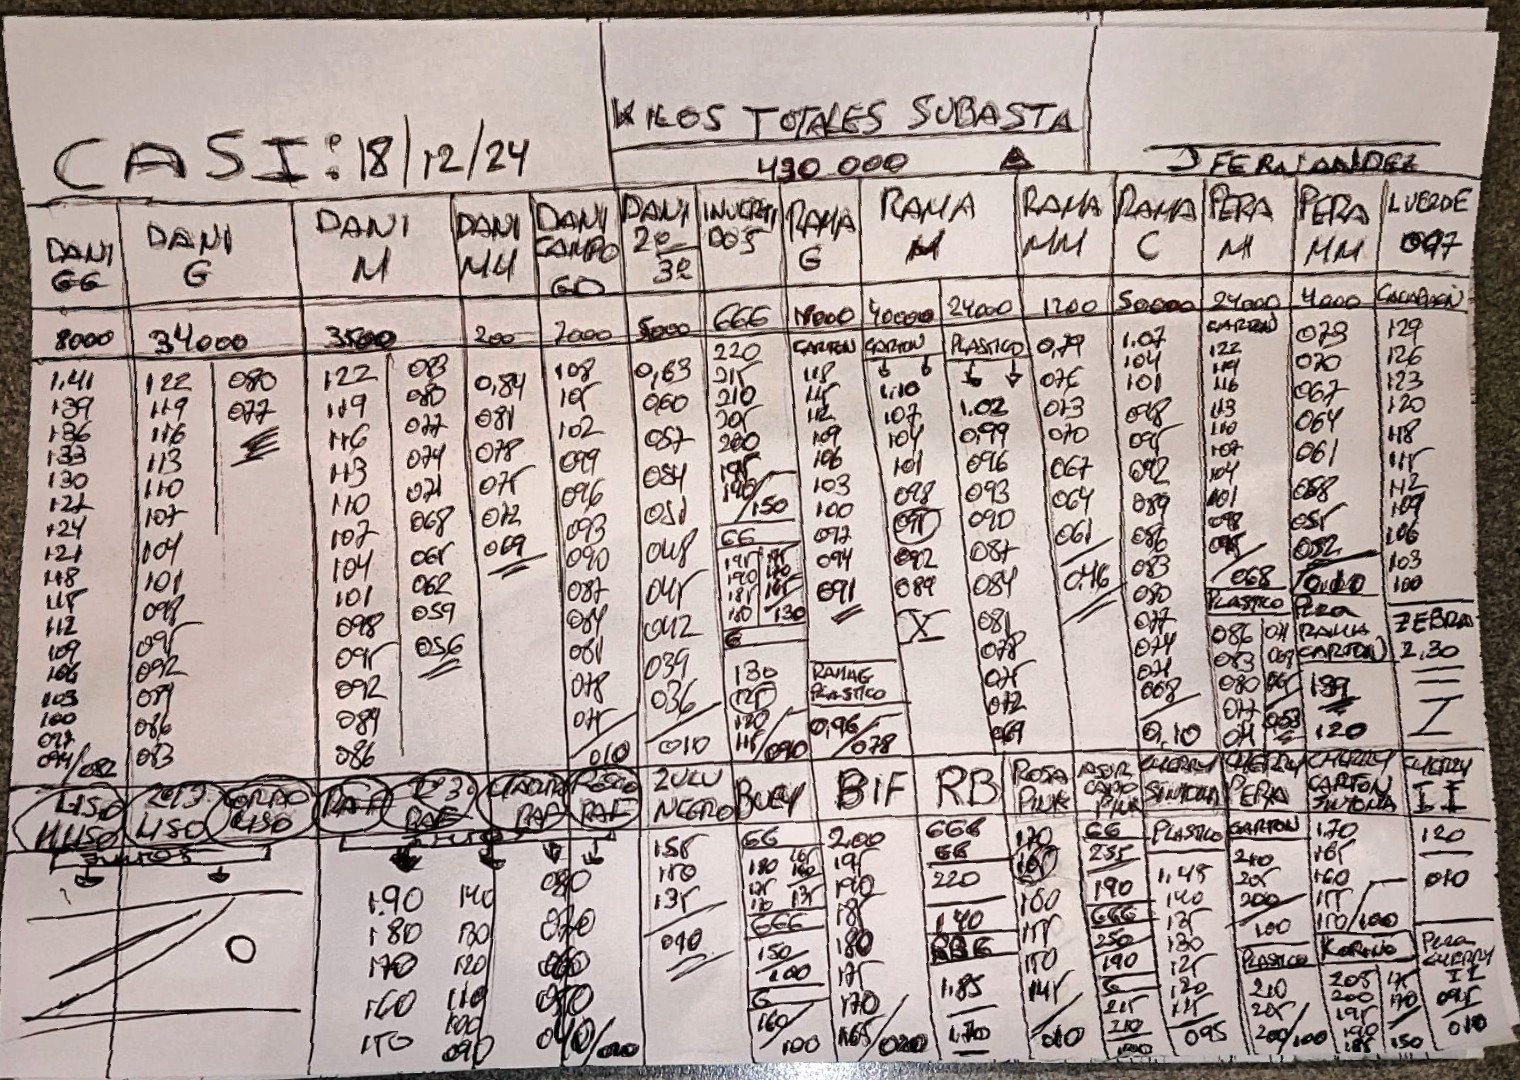 KILOS TOTALES SUBASTA
CASI: 18/12/24
430.000
J FERNANDEZ
DANI GG
DANI G
DANI M
DANI MM
DANI CAMPO GD
DANI 2º 3º
INVERTIDOS
RAMA G
RAMA M
RAMA MM
RAMA C
PERA M
PERA MM
L VERDE
8000 34000 3500 200 7000 5000 GGG 40000 24000 1200 50000 24000 4000
1,41
139
136
133
130
124
121
118
115
112
109
106
103
100
122 080
119 077
116
113
110
107
104
101
098
095
092
089
086
083
122 083
119 080
116 077
113 074
110 071
107 068
104 065
101 062
098 059
095 056
092
089
086
0,84
081
078
075
072
069
108
105
102
099
096
093
090
087
084
081
078
075
010
0,63
060
057
054
051
048
045
042
039
036
010
220
215
210
205
200
195
190/150
GG
G
130
125
120
115/090
CARTON
118
115
112
109
106
103
100
097
094
091
RAMA G
PLASTICO
0,96/078
CARTON
1.10
107
104
101
098
095
092
089
X
PLASTICO
1.02
0,99
096
093
090
087
084
081
078
075
072
069
0,79
076
073
070
067
064
061
0,46
1.07
104
101
098
095
092
089
086
083
080
077
074
071
068
0,10
CARTON
122
119
116
113
110
107
104
101
098
095
068
PLASTICO
086 071
083 068
080 065
077 053
074
073
070
067
064
061
058
055
052
PERA
RAMA
CARTON
139
120
129
126
123
120
118
115
112
109
106
103
100
ZEBRA
2,30
LISO
2º 3º
LISO
GORDO
LISO
RAF
2º 3º
RAF
RAF
RAF
ZULU
NEGRO
BUEY
BIF
RB
ROSA
PINK
CHERRY
SINTONIA
CHERRY
PERA
CHERRY
CARTON
SINTONIA
CHERRY
II
JUNTOS
0
1.90 140 080
180 130 070
170 120 060
160 110 050
150 100 040/020
090
155
150
135
010
GG
180 165
175 160
170 135
GGG
150
100
G
160/
100
200
195
190
185
180
175
170
165/020
GGG
GG
220
1.40
RB G
1.85
1.70
170
165
160
155
150
145
010
GG
235
190
GGG
250
190
G
215
210
PLASTICO
1.45
140
135
130
125
120
115
095
CARTON
210
205
200
100
PLASTICO
210
205
200/100
170
165
160
155
150/100
KORINO
205 175
200 170
195
190
185 150
120
010
PERA
CHERRY
II
095
010